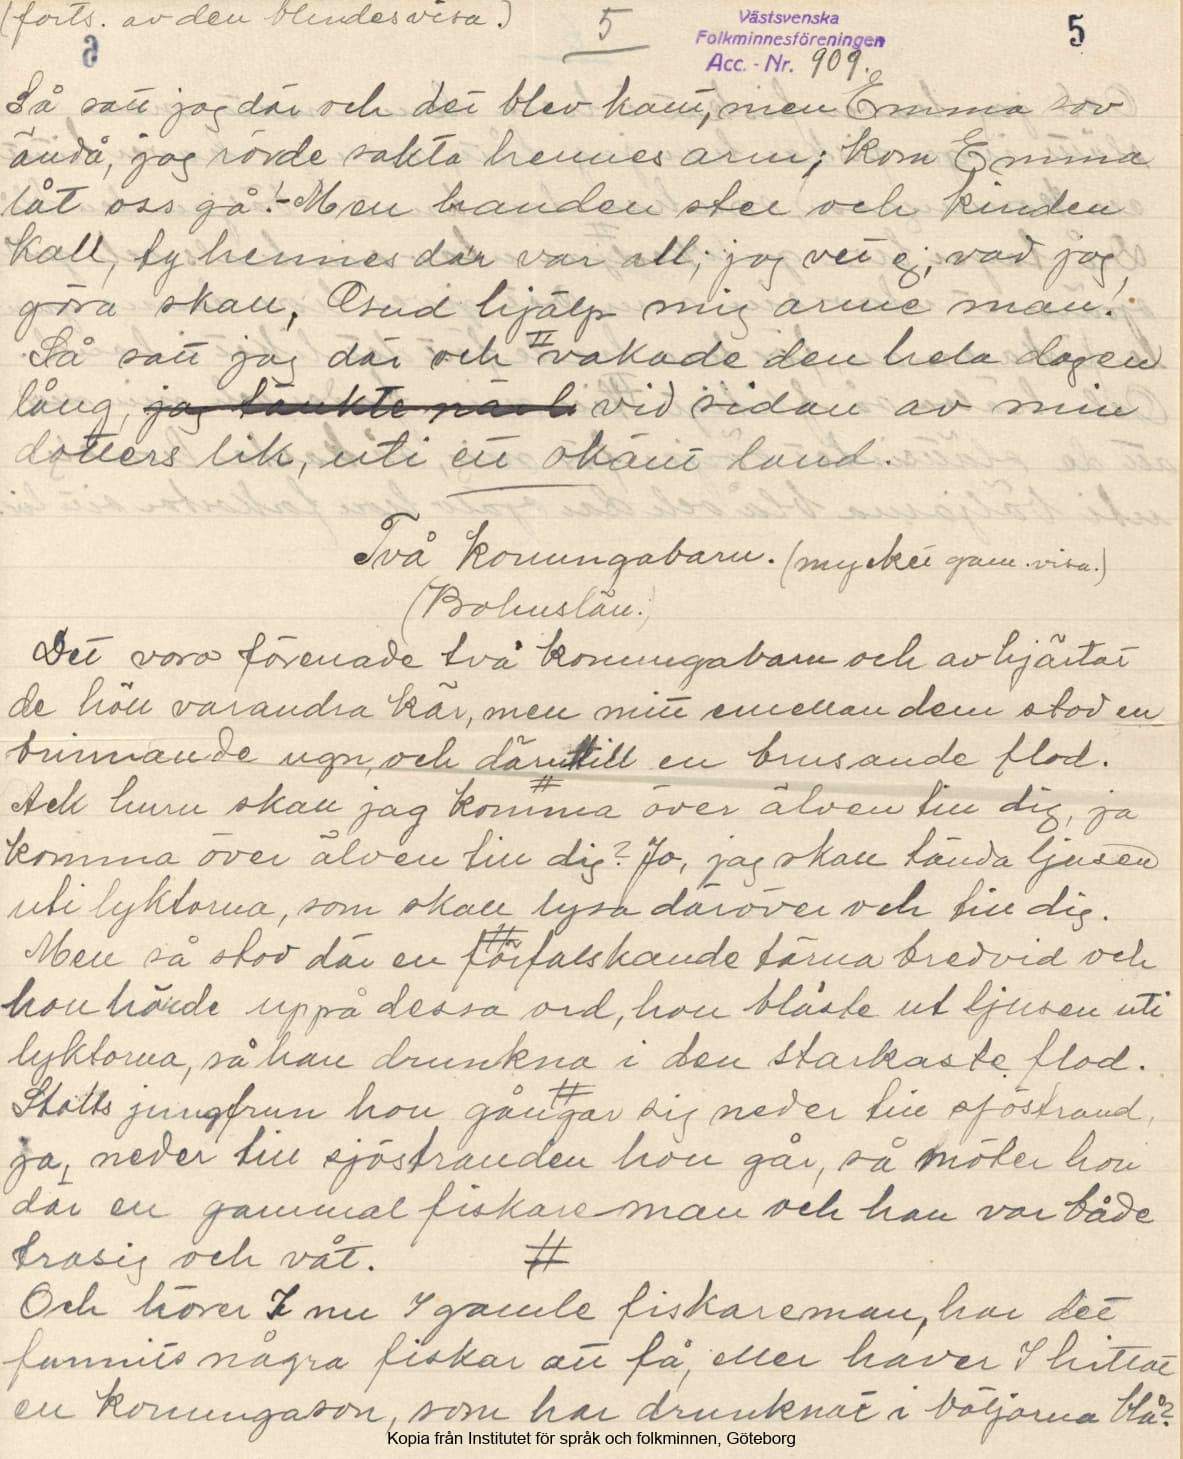 (forts. av den blindes visa.)
5
Västsvenska
Folkminnesföreningen
Acc. - Nr. 909.
5
6
Så satt jag där och det blev hatt, men Emma sov
ändå, jag rörde sakta hennes arm; kom Emma
låt oss gå! - Men handen stel och kinden
kall, ty hennes dar var all; jag vet ej, vad jag
göra skall, O Gud hjälp mig arme man!
II
Så satt jag där och vakade den hela dagen
lång, jag tänkte när vid sidan av min
dotters lik, uti ett okänt land.
Två konungabarn. (mycket gam. visa.)
(Bohuslän.)
Det voro förenade två konungabarn och av hjärtat
de höll varandra kär, men mitt emellan dem stod en
brinnande ugn, och därtill en brusande flod.
#
Ack huru skall jag komma över älven till dig, ja
komma över älven till dig? Jo, jag skall tända ljusen
uti lyktorna, som skall lysa däröver och till dig.
#
Men så stod där en förfalskande tärna bredvid och
hon hörde uppå dessa ord, hon blåste ut ljusen uti
lyktorna, så han drunkna i den starkaste flod.
#
Slotts jungfrun hon gångar sig neder till sjöstrand,
ja, neder till sjöstranden hon går, så möter hon
där en gammal fiskare man och han var både
trasig och våt.
#
Och hörer I nu I gamle fiskareman, har det
funnits några fiskar att få, eller haver I hittat
en konungason, som har drunknat i böljorna blå?
Kopia från Institutet för språk och folkminnen, Göteborg